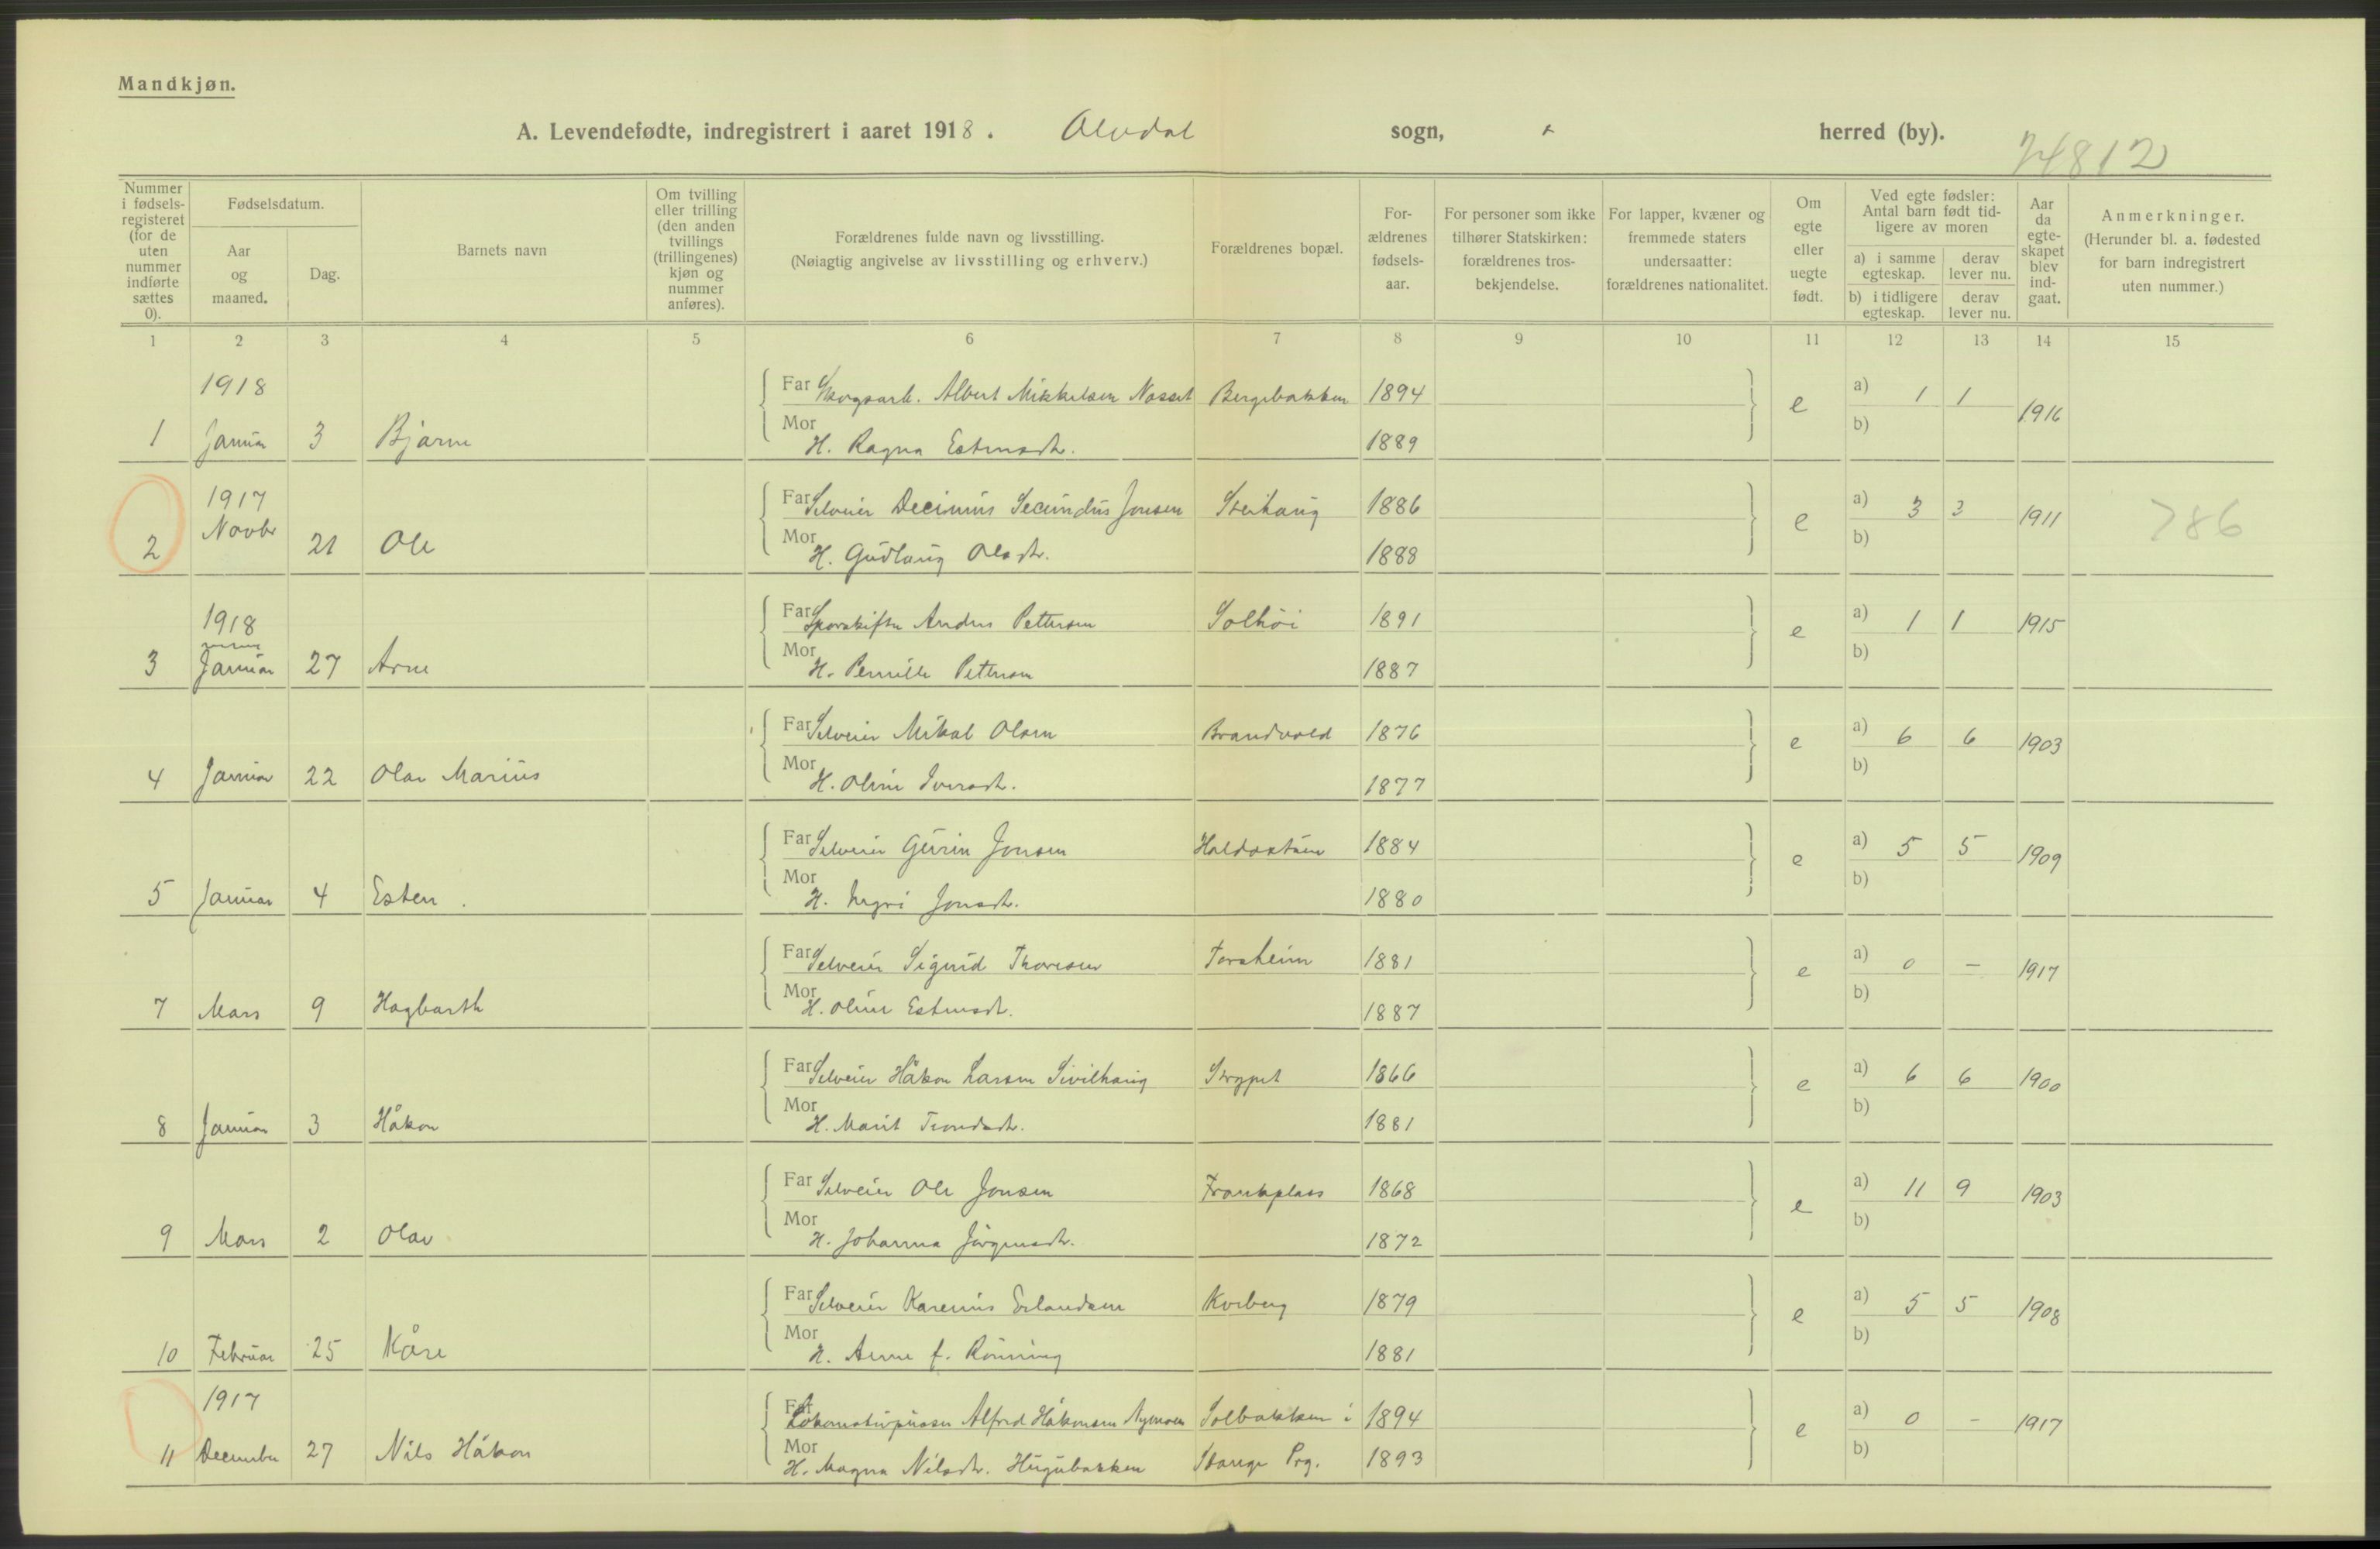 Mandkjøn.
A. Levendefødte, indregistrert i aaret 1918. Alvdal sogn, herred (by).
Nummer i fødsels-registeret (for de uten nummer indførte sættes 0).
Fødselsdatum.
Aar og maaned.
Dag.
Barnets navn
Om tvilling eller trilling (den anden tvillings (trillingenes) kjøn og nummer anføres).
Forældrenes fulde navn og livsstilling.
(Nøiagtig angivelse av livsstilling og erhverv.)
Forældrenes bopæl.
For-ældrenes fødsels-aar.
For personer som ikke tilhører Statskirken: forældrenes tros-bekjendelse.
For lapper, kvæner og fremmede staters undersaatter: forældrenes nationalitet.
Om egte eller uegte født.
Ved egte fødsler: Antal barn født tid-ligere av moren
a) i samme egteskap. derav lever nu.
b) i tidligere egteskap. derav lever nu.
Aar da egte-skapet blev ind-gaat.
Anmerkninger.
(Herunder bl. a. fødested for barn indregistrert uten nummer.)
1 2 3 4 5 6 7 8 9 10 11 12 13 14 15
1918 Far Skogsarb. Albert Mikkelsen Nasset Bergebakken 1894 e a) 1 1 1916
1 Januar 3 Bjarne Mor H. Ragna Estensdtr. 1889 b)
1917 Far Selveier Decimus Secundus Jonsen Steihaug 1886 e a) 3 3 1911 786
2 Novbr 21 Ole Mor H. Gudlaug Olsdtr. 1888 b)
1918 Far Sporskifter Anders Pettersen Solhöi 1891 e a) 1 1 1915
3 Januar 27 Arne Mor H. Pernille Pettersen 1887 b)
Far Selveier Mikal Olsen Brandvold 1876 e a) 6 6 1903
4 Januar 22 Olav Marius Mor H. Oline Iversdtr. 1877 b)
Far Selveier Jonsen 1884 e a) 5 5 1909
5 Januar 4 Esten. Mor H. Ingri Jonsdtr. 1880 b)
Far Selveier Sigurd Thoresen Torsheim 1881 e a) 0 - 1917
7 Mars 9 Hagbarth Mor H. Oline Estensdtr. 1887 b)
Far Selveier Håkon Larsen Sivilhaug Strypet 1866 e a) 6 6 1900
8 Januar 3 Håkon Mor H. Marit Trondsdtr. 1881 b)
Far Selveier Ole Jonsen Frankplass 1868 e a) 11 9 1903
9 Mars 2 Olav Mor H. Johanna Jörgensdtr. 1872 b)
Far Selveier Karenius Erlandsen Kvrberg 1879 e a) 5 5 1908
10 Februar 25 Kåre Mor H. Anne f. Rönning 1881 b)
1917 Far Lokomotivpusser Alfred Håkonsen Nymoen Solbakken i 1894 e a) 0 - 1917
11 December 27 Nils Håkon Mor H. Magna Nilsdtr. Hugubakken Stange Prg. 1893 b)